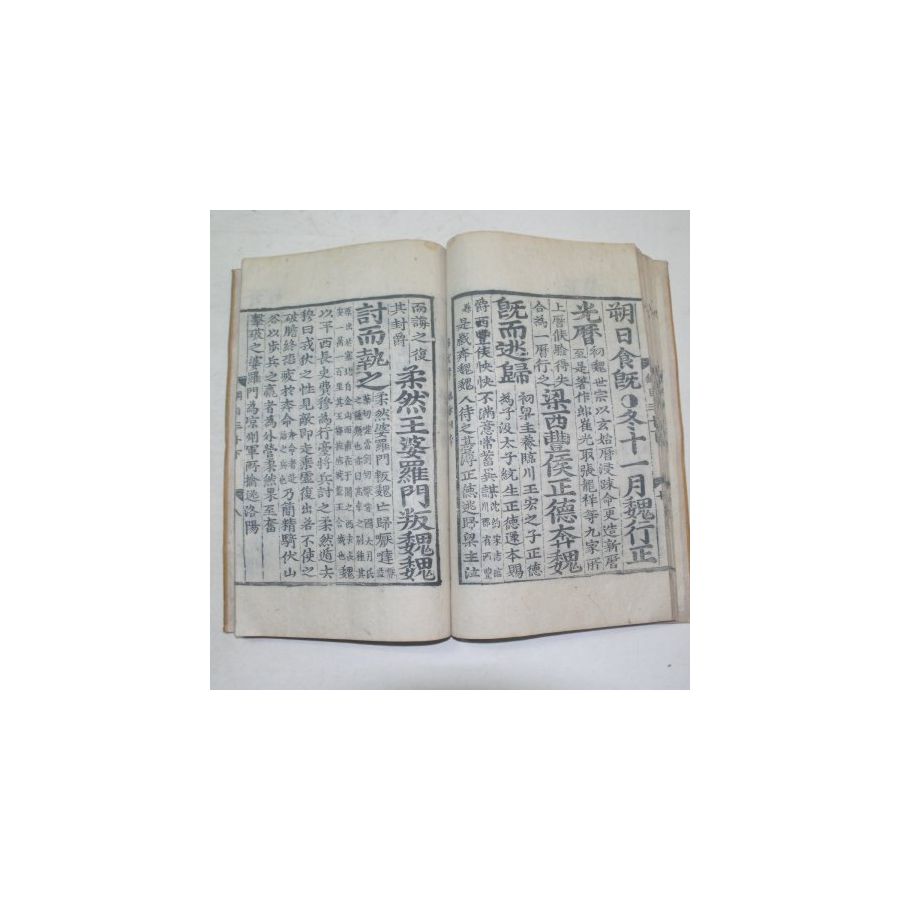 朔日食既●冬十一月魏行正
光曆初魏世宗以玄始曆浸踈命更造新曆
至是著作郞崔光取張龍祥等九家所
上曆候驗得失
合為一曆行之梁西豐侯正德奔魏
既而逃歸初梁主養臨川王宏之子正德
為子及太子統生正德還本賜
爵西豐侯怏怏不滿意常蓄異謀
是歲奔魏魏人待之甚薄正德逃歸梁主泣
而誨之復
其封爵柔然王婆羅門叛魏魏
討而執之柔然婆羅門叛魏亡歸嚈噠
魏
以平西長史費穆為行臺將兵討之柔然遁去
穆曰戎狄之性見敵即走乘虛復出若不使之
破膽終恐疲於奔命乃簡精騎伏山
谷以步兵之羸者為外營柔然果至奮
擊破之婆羅門為凉州軍所擒送洛陽